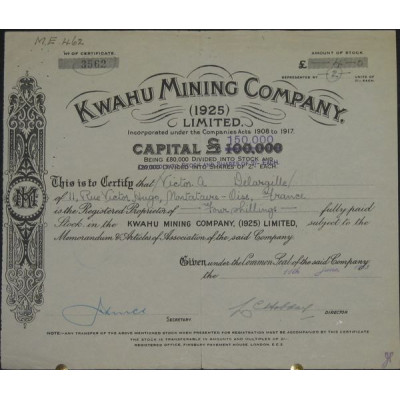 M.E 462
Nº OF CERTIFICATE
3562
AMOUNT OF STOCK
£
REPRESENTED BY
KWAHU MINING COMPANY,
(1925)
LIMITED.
Incorporated under the Companies Acts 1908 to 1917.
150,000
CAPITAL £100,000
BEING £80,000 DIVIDED INTO STOCK AND
DIVIDED INTO SHARES OF 2/- EACH
This is to Certify that Victor A Delargille
of 11, Rue Victor Hugo, Montataire-Oise, France
is the Registered Proprietor of Four Shillings fully paid
Stock in the KWAHU MINING COMPANY, (1925) LIMITED, subject to the
Memorandum & Articles of Association of the said Company
Given under the Common Seal of the said Company
the June
SECRETARY
DIRECTOR
NOTE:-ANY TRANSFER OF THE ABOVE MENTIONED STOCK WHEN PRESENTED FOR REGISTRATION MUST BE ACCOMPANIED BY THIS CERTIFICATE
THE STOCK IS TRANSFERABLE IN AMOUNTS AND MULTIPLES OF 2/-
REGISTERED OFFICE, FINSBURY PAVEMENT HOUSE LONDON E.C.2.